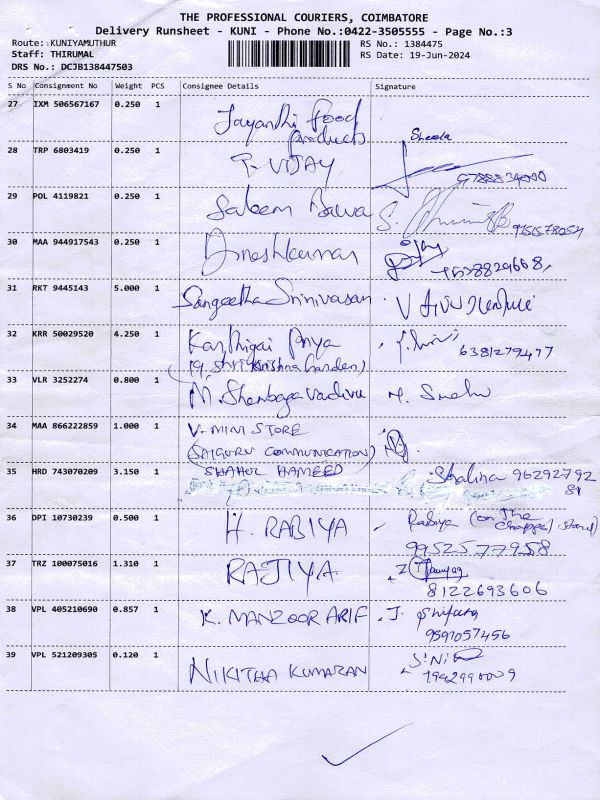 THE PROFESSIONAL COURIERS, COIMBATORE
Delivery Runsheet - KUNI - Phone No.:0422-3505555 - Page No.:3
Route: KUNIYAMUTHUR
Staff: THIRUMAL
DRS No.: DCJB138447503
RS No.: 1384475
RS Date: 19-Jun-2024
S No Consignment No Weight PCS Consignee Details Signature
27 IXM 506567167 0.250 1 Jayanthi Food
Products
28 TRP 6803419 0.250 1 T. VIJAY
29 POL 4119821 0.250 1 Saleem Bawa
30 MAA 944917543 0.250 1 Dineshkumar
31 RKT 9445143 5.000 1 Sangeetha Srinivasan
32 KRR 50029520 4.250 1 Karthigai Priya
(9, Shri Krishna Garden) 6381279477
33 VLR 3252274 0.800 1 M. Shenbagavadivu
34 MAA 866222859 1.000 1 V-MINI STORE
(SAIGURU COMMUNICATION)
35 HRD 743070209 3.150 1 SHAHUL HAMEED
36 DPI 10730239 0.500 1 H. RABIYA Rabiya (on the
9952577958
37 TRZ 100075016 1.310 1 RAJIYA
8122693606
38 VPL 405210690 0.857 1 K. MANZOOR ARIF J.
9597057456
39 VPL 521209305 0.120 1 NIKITHA KUMARAN